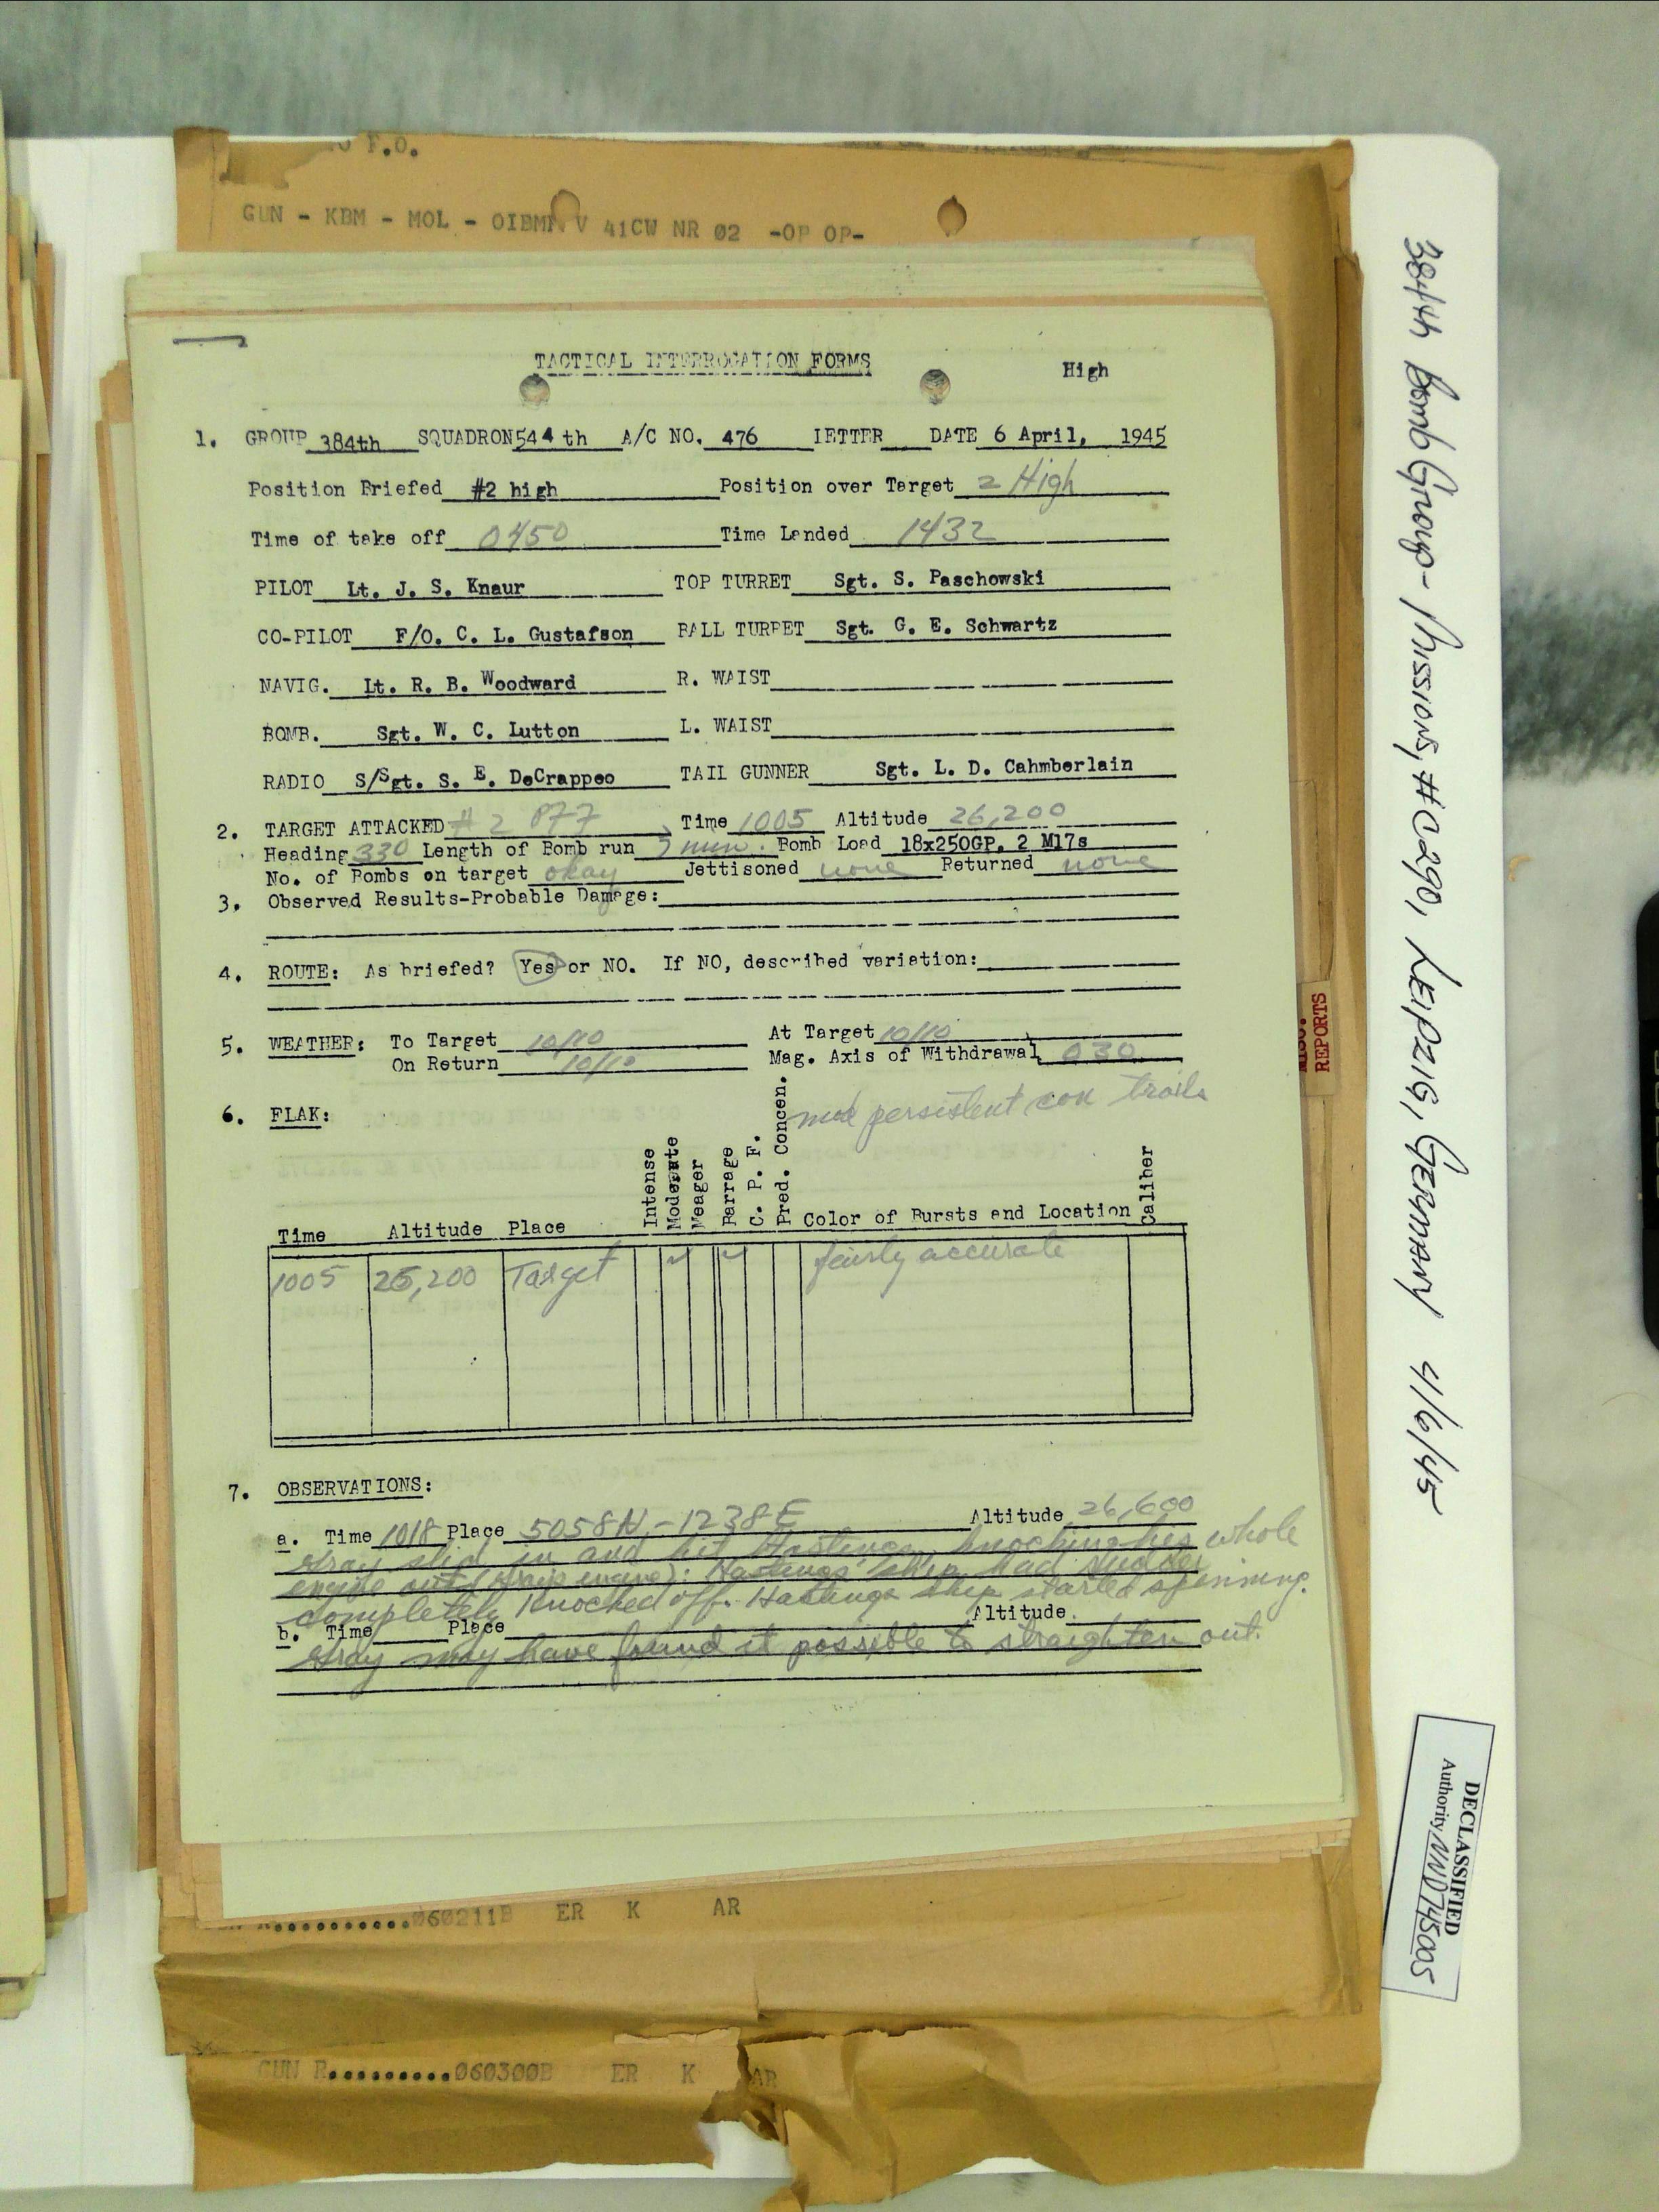 F.O.
GUN - KBM - MOL - OIBMR V 41CW NR 02 -OP OP-
TACTICAL INTERROGATION FORMS
High
1. GROUP 384th SQUADRON 544th A/C NO. 476 LETTER DATE 6 April, 1945
Position Briefed #2 high Position over Target 2 High
Time of take off 0450 Time Landed 1432
PILOT Lt. J. S. Knaur TOP TURRET Sgt. S. Paschowski
CO-PILOT F/O. C. L. Gustafson BALL TURRET Sgt. G. E. Schwartz
NAVIG. Lt. R. B. Woodward R. WAIST
BOMB. Sgt. W. C. Lutton L. WAIST
RADIO S/Sgt. S. E. DeCrappeo TAIL GUNNER Sgt. L. D. Cahmberlain
2. TARGET ATTACKED # 2 PFF Time 1005 Altitude 26,200
Heading 330 Length of Bomb run min. Bomb Load 18x250GP, 2 M17s
No. of Bombs on target okay Jettisoned none Returned none
3. Observed Results-Probable Damage:
4. ROUTE: As briefed? Yes or NO. If NO, described variation:
5. WEATHER: To Target 10/10 At Target 10/10
On Return 10/10 Mag. Axis of Withdrawal 030
6. FLAK: mod persistent con trails
Time Altitude Place Intense Moderate Meager Barrage C. P. F. Pred. Concen. Color of Bursts and Location Caliber
1005 26,200 Target ✓ ✓ fairly accurate
7. OBSERVATIONS:
a. Time 1018 Place 5058N - 1238E Altitude 26,600
Gray slid in and hit Hastings, knocking his whole
engine out engine): Hastings' ship had rudder
completely knocked off. Hastings ship started spinning.
b. Time Place Altitude
Gray may have found it possible to straighten out.
060211B ER K AR
GUN R..........060300B ER K AR
MISC. REPORTS
384th Bomb Group - Missions, #C290, LEIPZIG, GERMANY 4/6/45
DECLASSIFIED
Authority NND745005